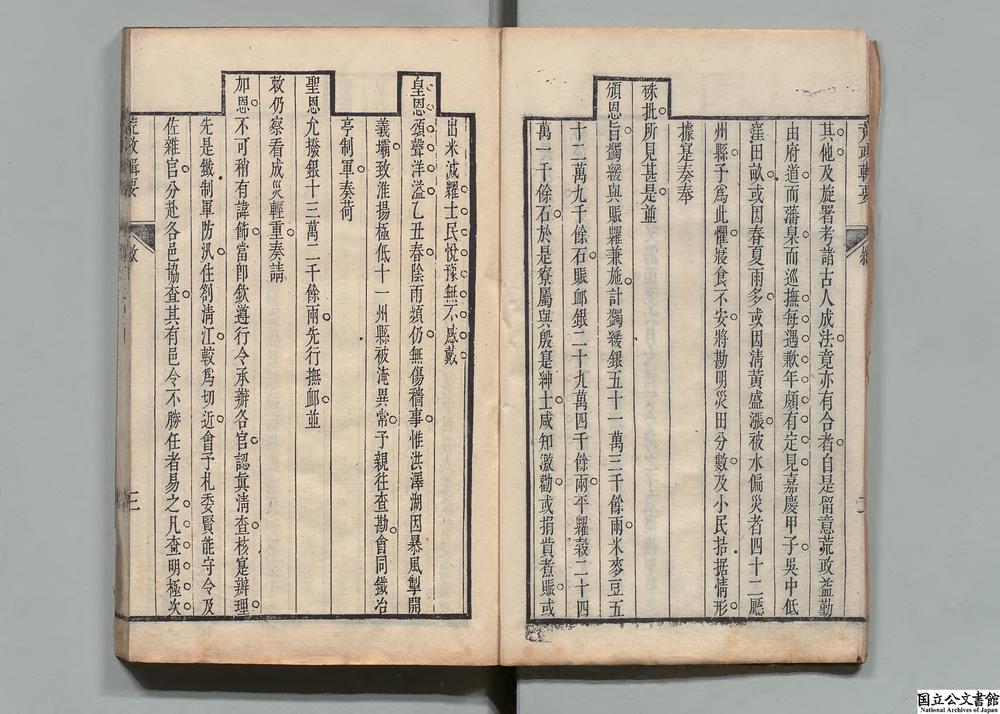 荒政輯要
其他及旋署考諸古人成法竟亦有合者自是留意荒政益勤
由府道而藩臬而巡撫每遇歉年頗有定見嘉慶甲子吳中低
窪田畝或因春夏雨多或因清黃盛漲被水偏災者四十二廳
州縣予爲此懼寢食不安將勘明災田分數及小民拮据情形
據寔奏奉
硃批所見甚是並
頒恩旨蠲緩與賑糶兼施計蠲緩銀五十一萬三千餘兩米麥豆五
十二萬九千餘石賑卹銀二十九萬四千餘兩平糶穀二十四
萬一千餘石於是寮屬與殷寔紳士咸知激勸或捐貲煮賑或
出米減糶士民悅豫無不感戴
皇恩頌聲洋溢乙丑春陰雨頻仍無傷穡事惟洪澤湖因暴風掣開
義壩致淮揚極低十一州縣被淹異常予親往查勘會同鐵冶
亭制軍奏荷
聖恩允撥銀十三萬二千餘兩先行撫卹並
敕仍察看成災輕重奏請
加恩不可稍有諱飾當卽欽遵行令承辦各官認眞淸查核寔辦理
先是鐵制軍防汛住劄清江較爲切近會予札委賢能守令及
佐雜官分赴各邑協查其有邑令不勝任者易之凡查明極次
荒政輯要 敘 三
国立公文書館
National Archives of Japan